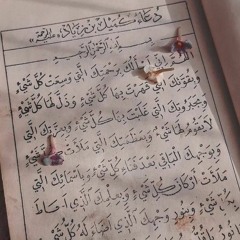 دعاء كميل بن زياد
بسم الله الرحمن الرحيم
اللهم إني أسألك برحمتك التي وسعت كل شيء
وبقوتك التي قهرت بها كل شيء وخضع لها كل شيء وذل لها كل شيء
وبجبروتك التي غلبت بها كل شيء وبعزتك التي
لا يقوم لها شيء وبعظمتك التي ملأت كل شيء
وبوجهك الباقي بعد فناء كل شيء وبأسمائك التي
ملأت أركان كل شيء وبعلمك الذي أحاط
بكل شيء وبنور وجهك الذي أضاء له كل شيء